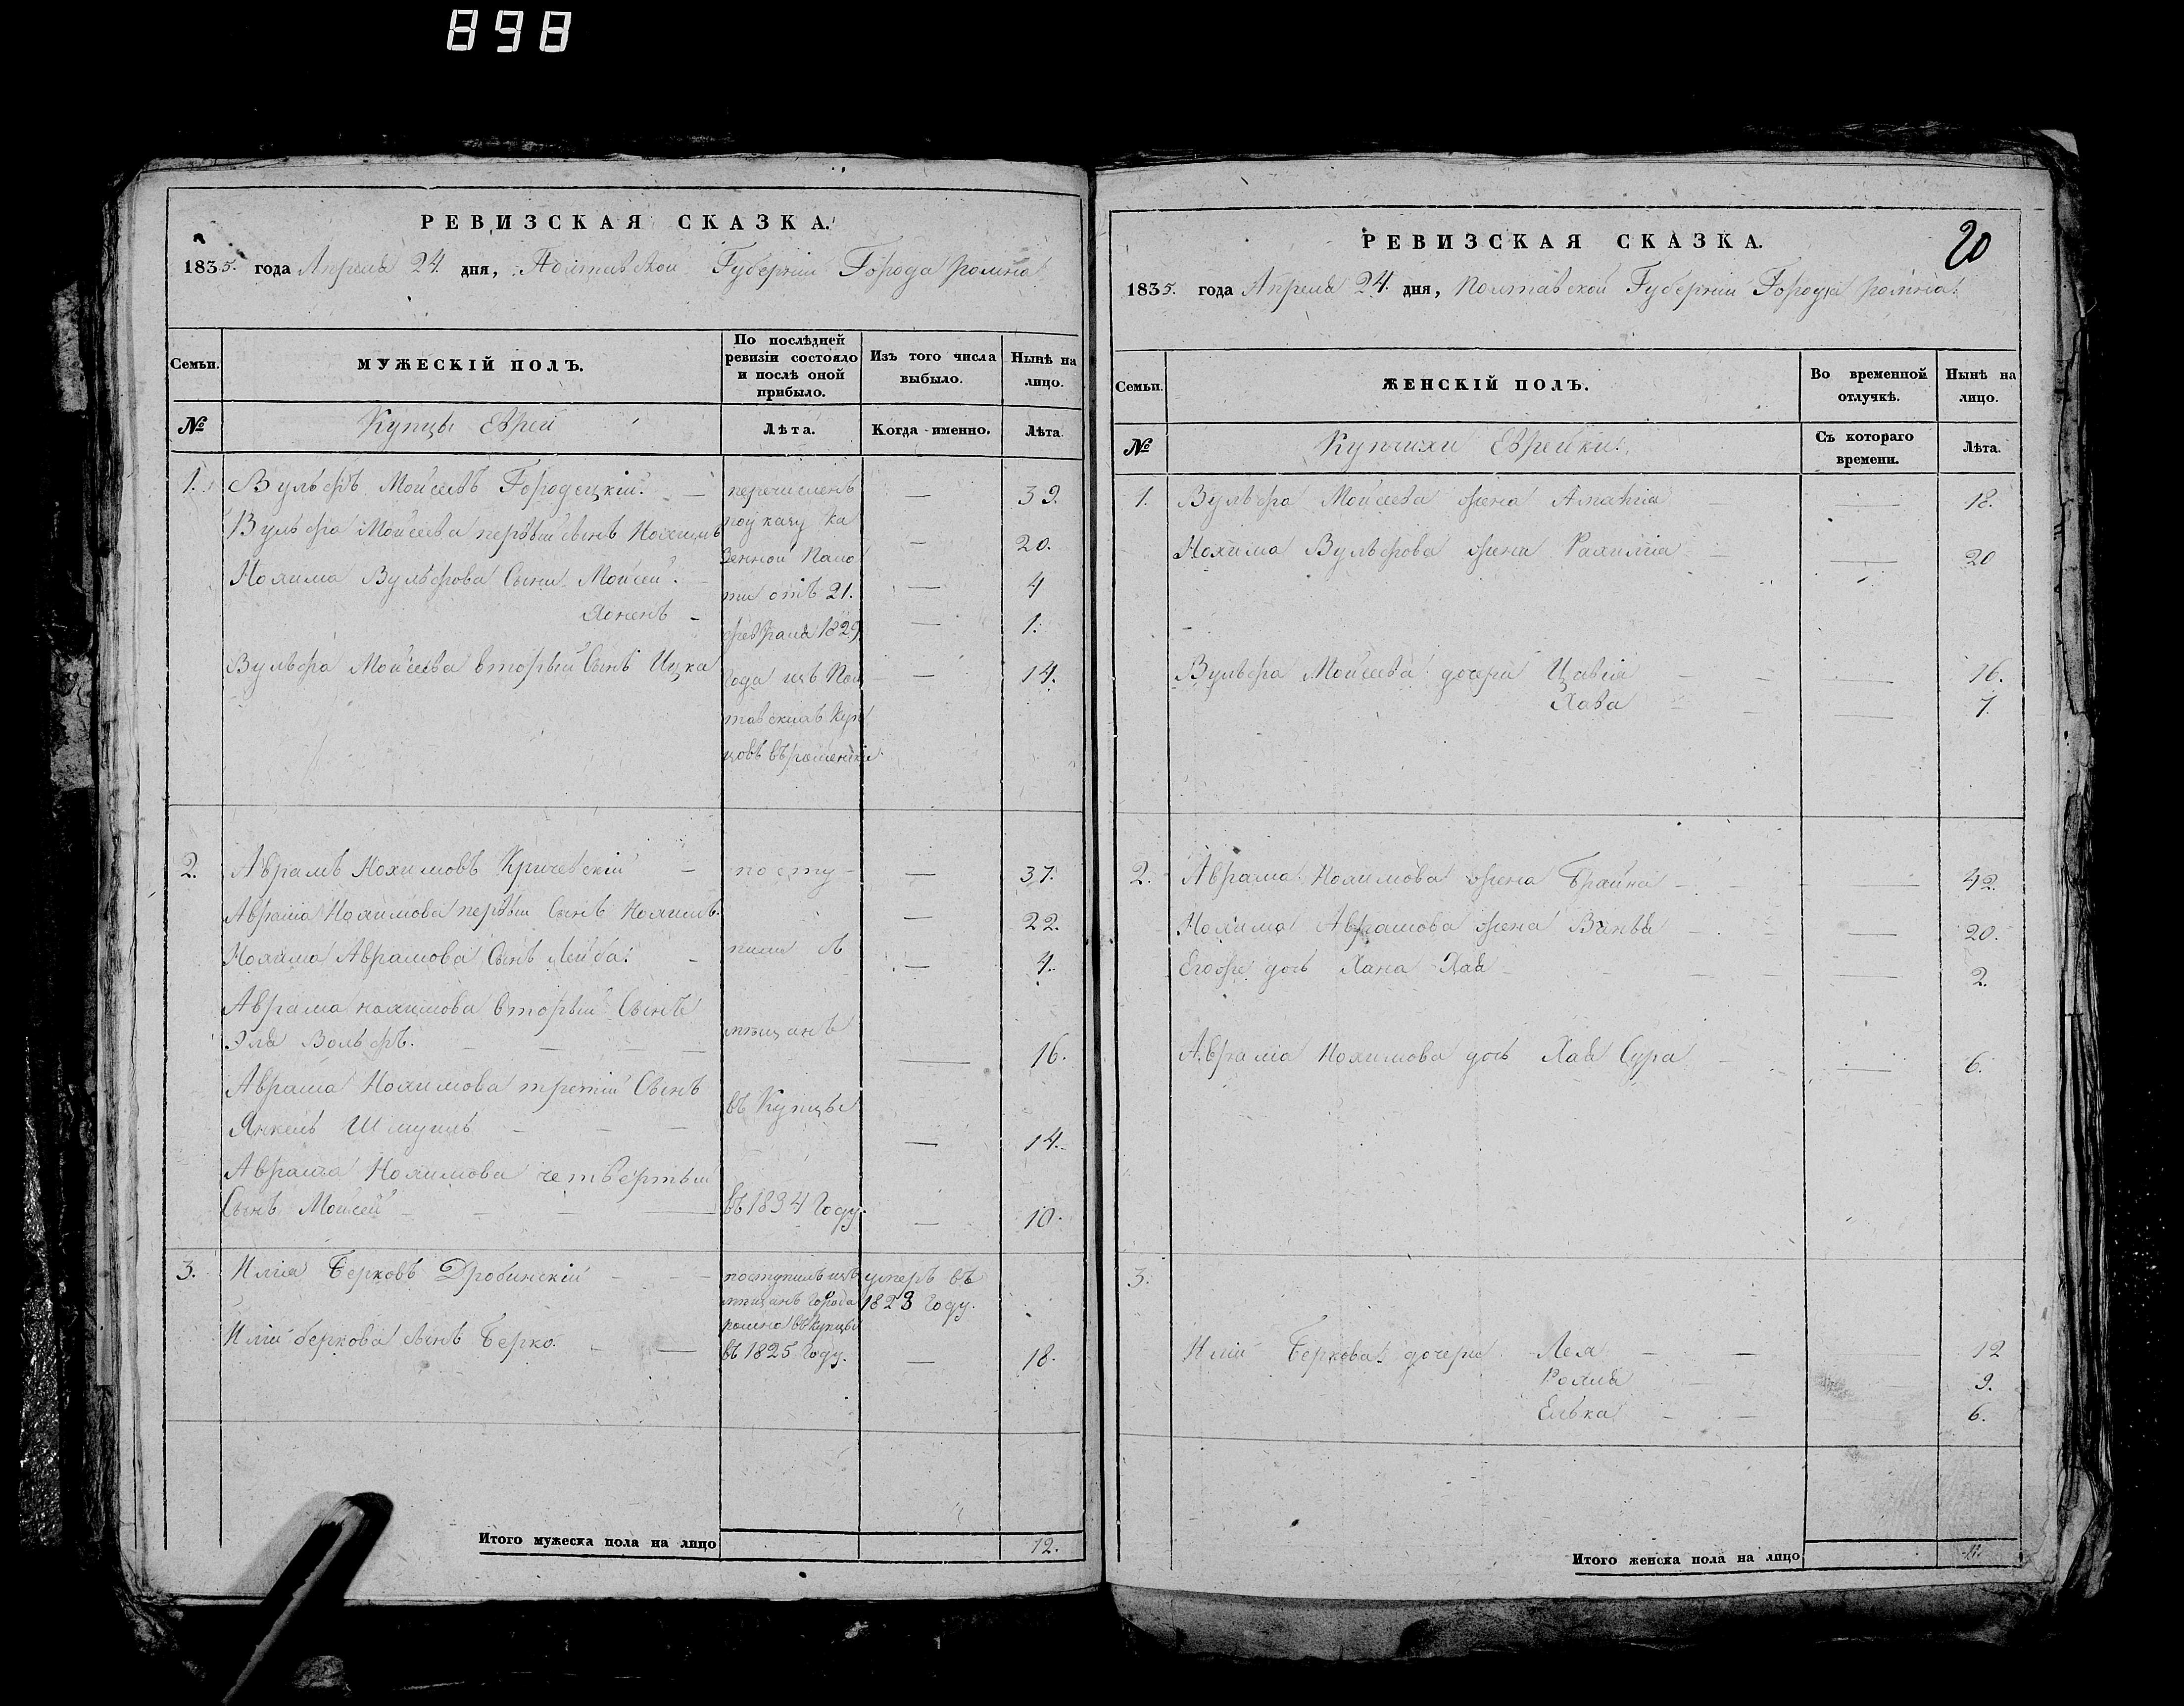 898
РЕВИЗСКАЯ СКАЗКА.
1835. года Апреля 24. дня, Полтавской Губернии Города Ромна
Семьи.
МУЖЕСКІЙ ПОЛЪ.
По послѣдней ревизіи состояло и послѣ оной прибыло.
Изъ того числа выбыло.
Нынѣ на лицо.
№
Купцы Евреи
Лѣта.
Когда именно.
Лѣта
1. Вульфъ Мойсеевъ Городецкій. — перечисленъ — 39.
Вульфа Мойсеева первый сынъ Нохимъ по указу Ка — 20.
Нохима Вульфова Сыны Мойсей. — зенной Пала
ты отъ 21. — 4
— февраля 1829 — 1.
Вульфа Мойсеева вторый Сынъ Ицка года изъ Пол — 14.
тавскихъ Куп
цовъ въ роменскіе
2. Аврамъ Нохимовъ Кричевскій — посту — 37.
Аврама Нохимова первый Сынъ Нохимъ. — 22.
Нохима Аврамова Сынъ Лейба. — — 4.
Аврама нохимова вторый Сынъ
мѣщанъ
Эля Вольфъ. — — — — — 16.
Аврама Нохимова третій Сынъ
въ Купцы
Янкель Шмуиль — — — — 14.
Аврама Нохимова четвертый
Сынъ Мойсей — — — — въ 1834 Году. — 10.
3. Илія Берковъ Дробинскій — — поступилъ изъ умеръ въ
мѣщанъ города 1828 Году.
ромна въ купцы
Иліи беркова сынъ Берко. — — въ 1825 Году. — 18.
Итого мужеска пола на лицо 12.
20
РЕВИЗСКАЯ СКАЗКА.
1835. года Апреля 24. дня, Полтавской Губерніи Города ромна.
Семьи.
ЖЕНСКІЙ ПОЛЪ.
Во временной отлучкѣ.
Нынѣ на лицо.
№
Купчихи Еврейки.
Съ котораго времени.
Лѣта.
1. Вульфа Мойсеева жена — 18.
Нохима Вульфова жена — 20
Вульфа Мойсеева дочери Цивія — — — 16.
Хава — — 7.
2. Аврама Нохимова жена Брайна — — — 42.
Нохима Аврамова жена — — 20.
Егоже дочь Хана Хая — — — 2.
Аврама Нохимова дочь Хая Сура — — 6.
3.
Иліи Беркова дочери Лея — — — 12
Рохля — — 9.
Елька — — 6.
Итого женска пола на лицо